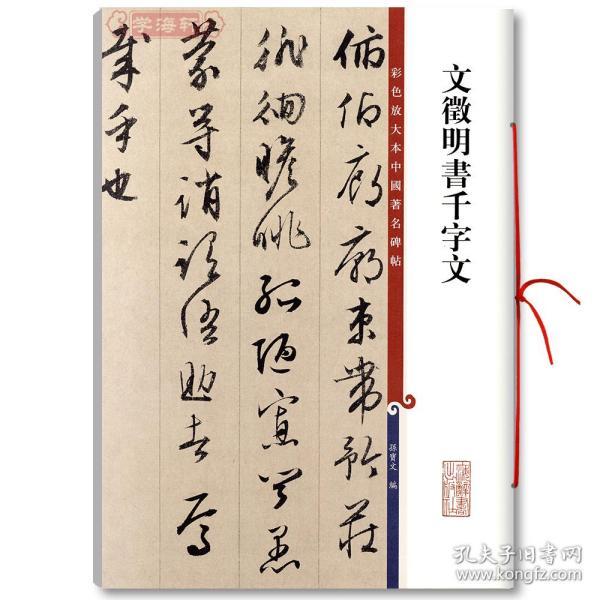 文徵明書千字文
彩色放大本中國著名碑帖
孫寶文 編
俯仰廊廟束帶矜莊
徘徊瞻眺孤陋寡聞愚
蒙等誚謂語助者焉
哉乎也
学海轩
孔夫子旧书网
www.kongfz.com